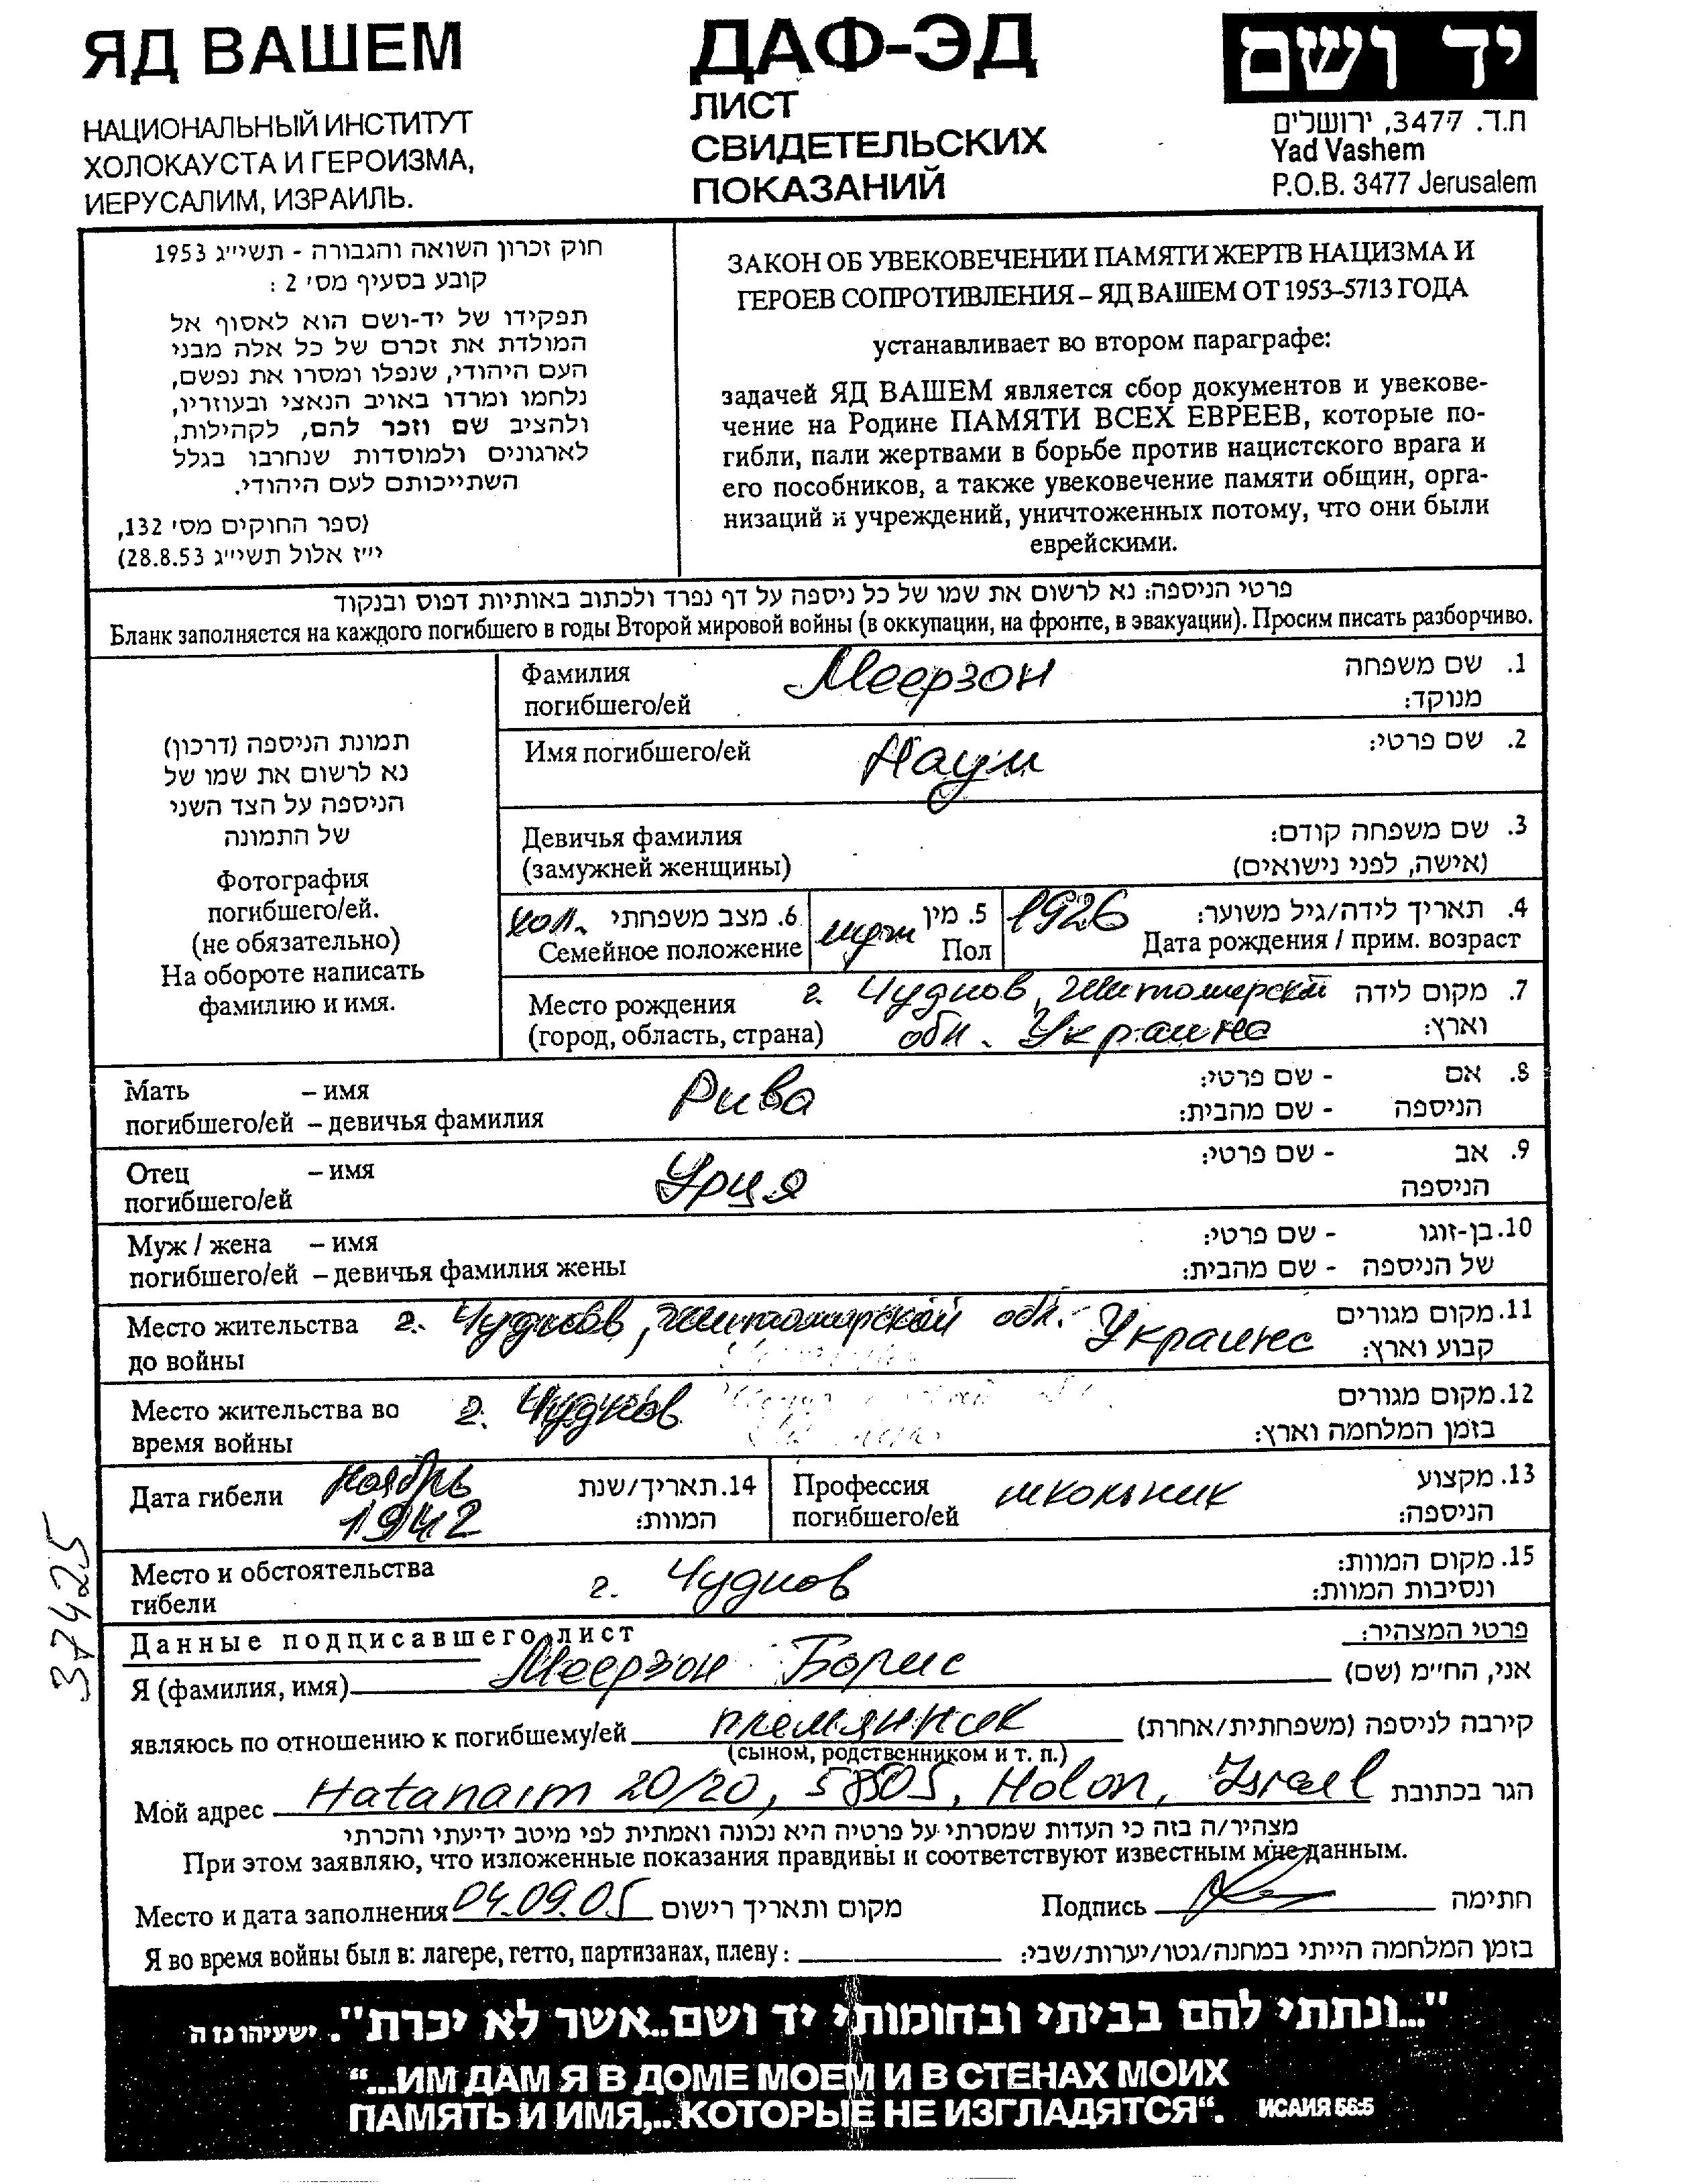 ЯД ВАШЕМ
НАЦИОНАЛЬНЫЙ ИНСТИТУТ
ХОЛОКАУСТА И ГЕРОИЗМА,
ИЕРУСАЛИМ, ИЗРАИЛЬ.
ДАФ-ЭД
ЛИСТ
СВИДЕТЕЛЬСКИХ
ПОКАЗАНИЙ
יד ושם
ת.ד. 3477, ירושלים
Yad Vashem
P.O.B. 3477 Jerusalem
חוק זכרון השואה והגבורה - תשי״ג 1953
קובע בסעיף מס׳ 2 :
תפקידו של יד-ושם הוא לאסוף אל
המולדת את זכרם של כל אלה מבני
העם היהודי, שנפלו ומסרו את נפשם,
נלחמו ומרדו באויב הנאצי ובעוזריו,
ולהציב שם וזכר להם, לקהילות,
לארגונים ולמוסדות שנחרבו בגלל
השתייכותם לעם היהודי.
(ספר החוקים מס׳ 132,
י״ז אלול תשי״ג 28.8.53)
ЗАКОН ОБ УВЕКОВЕЧЕНИИ ПАМЯТИ ЖЕРТВ НАЦИЗМА И
ГЕРОЕВ СОПРОТИВЛЕНИЯ – ЯД ВАШЕМ ОТ 1953–5713 ГОДА
устанавливает во втором параграфе:
задачей ЯД ВАШЕМ является сбор документов и увекове-
чение на Родине ПАМЯТИ ВСЕХ ЕВРЕЕВ, которые по-
гибли, пали жертвами в борьбе против нацистского врага и
его пособников, а также увековечение памяти общин, орга-
низаций и учреждений, уничтоженных потому, что они были
еврейскими.
פרטי הניספה: נא לרשום את שמו של כל ניספה על דף נפרד ולכתוב באותיות דפוס ובנקוד
Бланк заполняется на каждого погибшего в годы Второй мировой войны (в оккупации, на фронте, в эвакуации). Просим писать разборчиво.
תמונת הניספה (דרכון)
נא לרשום את שמו של
הניספה על הצד השני
של התמונה
Фотография
погибшего/ей.
(не обязательно)
На обороте написать
фамилию и имя.
Фамилия Меерзон 1. שם משפחה
погибшего/ей מנוקד:
Имя погибшего/ей Наум 2. שם פרטי:
Девичья фамилия 3. שם משפחה קודם:
(замужней женщины) (אישה, לפני נישואים)
хол. 6. מצב משפחתי муж 5. מין 1926 4. תאריך לידה/גיל משוער:
Семейное положение Пол Дата рождения / прим. возраст
Место рождения г. Чуднов, Житомирской 7. מקום לידה
(город, область, страна) обл. Украина וארץ:
Мать – имя Рива 8. אם - שם פרטי:
погибшего/ей – девичья фамилия הניספה - שם מהבית:
Отец – имя Урця 9. אב - שם פרטי:
погибшего/ей הניספה
Муж / жена – имя 10. בן-זוגו - שם פרטי:
погибшего/ей – девичья фамилия жены של הניספה - שם מהבית:
Место жительства г. Чуднов, Житомирской обл. Украинс 11. מקום מגורים
до войны קבוע וארץ:
Место жительства во г. Чуднов 12. מקום מגורים
время войны בזמן המלחמה וארץ:
Дата гибели ноябрь 1942 14. תאריך/שנת המוות:
Профессия школьник 13. מקצוע
погибшего/ей הניספה:
Место и обстоятельства г. Чуднов 15. מקום המוות:
гибели ונסיבות המוות:
37425
Данные подписавшего лист פרטי המצהיר:
Я (фамилия, имя) Меерзон Борис אני, הח״מ (שם)
являюсь по отношению к погибшему/ей племянник קירבה לניספה (משפחתית/אחרת)
(сыном, родственником и т. п.)
Мой адрес Hatanaim 20/20, 58505, Holon, Israel הגר בכתובת
מצהיר/ה בזה כי העדות שמסרתי על פרטיה היא נכונה ואמתית לפי מיטב ידיעתי והכרתי
При этом заявляю, что изложенные показания правдивы и соответствуют известным мне данным.
Место и дата заполнения 04.09.05 מקום ותאריך רישום Подпись חתימה
Я во время войны был в: лагере, гетто, партизанах, плену: בזמן המלחמה הייתי במחנה/גטו/יערות/שבי:
"...ונתתי להם בביתי ובחומותי יד ושם..אשר לא יכרת". ישעיהו נז ה
“...ИМ ДАМ Я В ДОМЕ МОЕМ И В СТЕНАХ МОИХ
ПАМЯТЬ И ИМЯ,.. КОТОРЫЕ НЕ ИЗГЛАДЯТСЯ“. ИСАИЯ 56:5